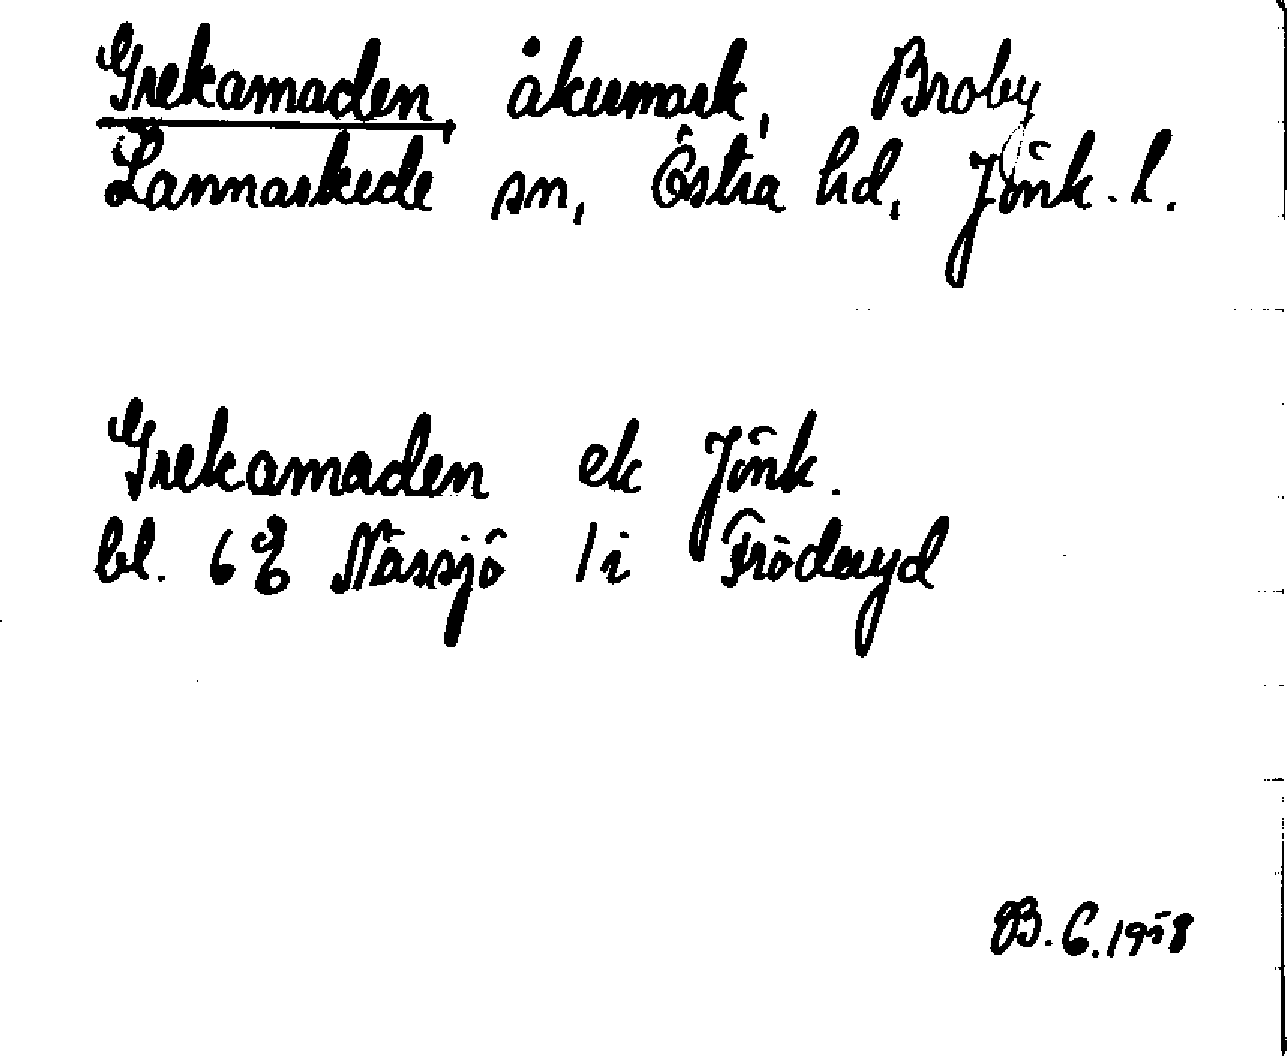 Grekamaden, åkermark, Broby
Lannaskede sn, Östra hd, Jönk. l.
Grekamaden ek Jönk.
bl. 6 E Nässjö 1 i Fröderyd
B. G. 1958